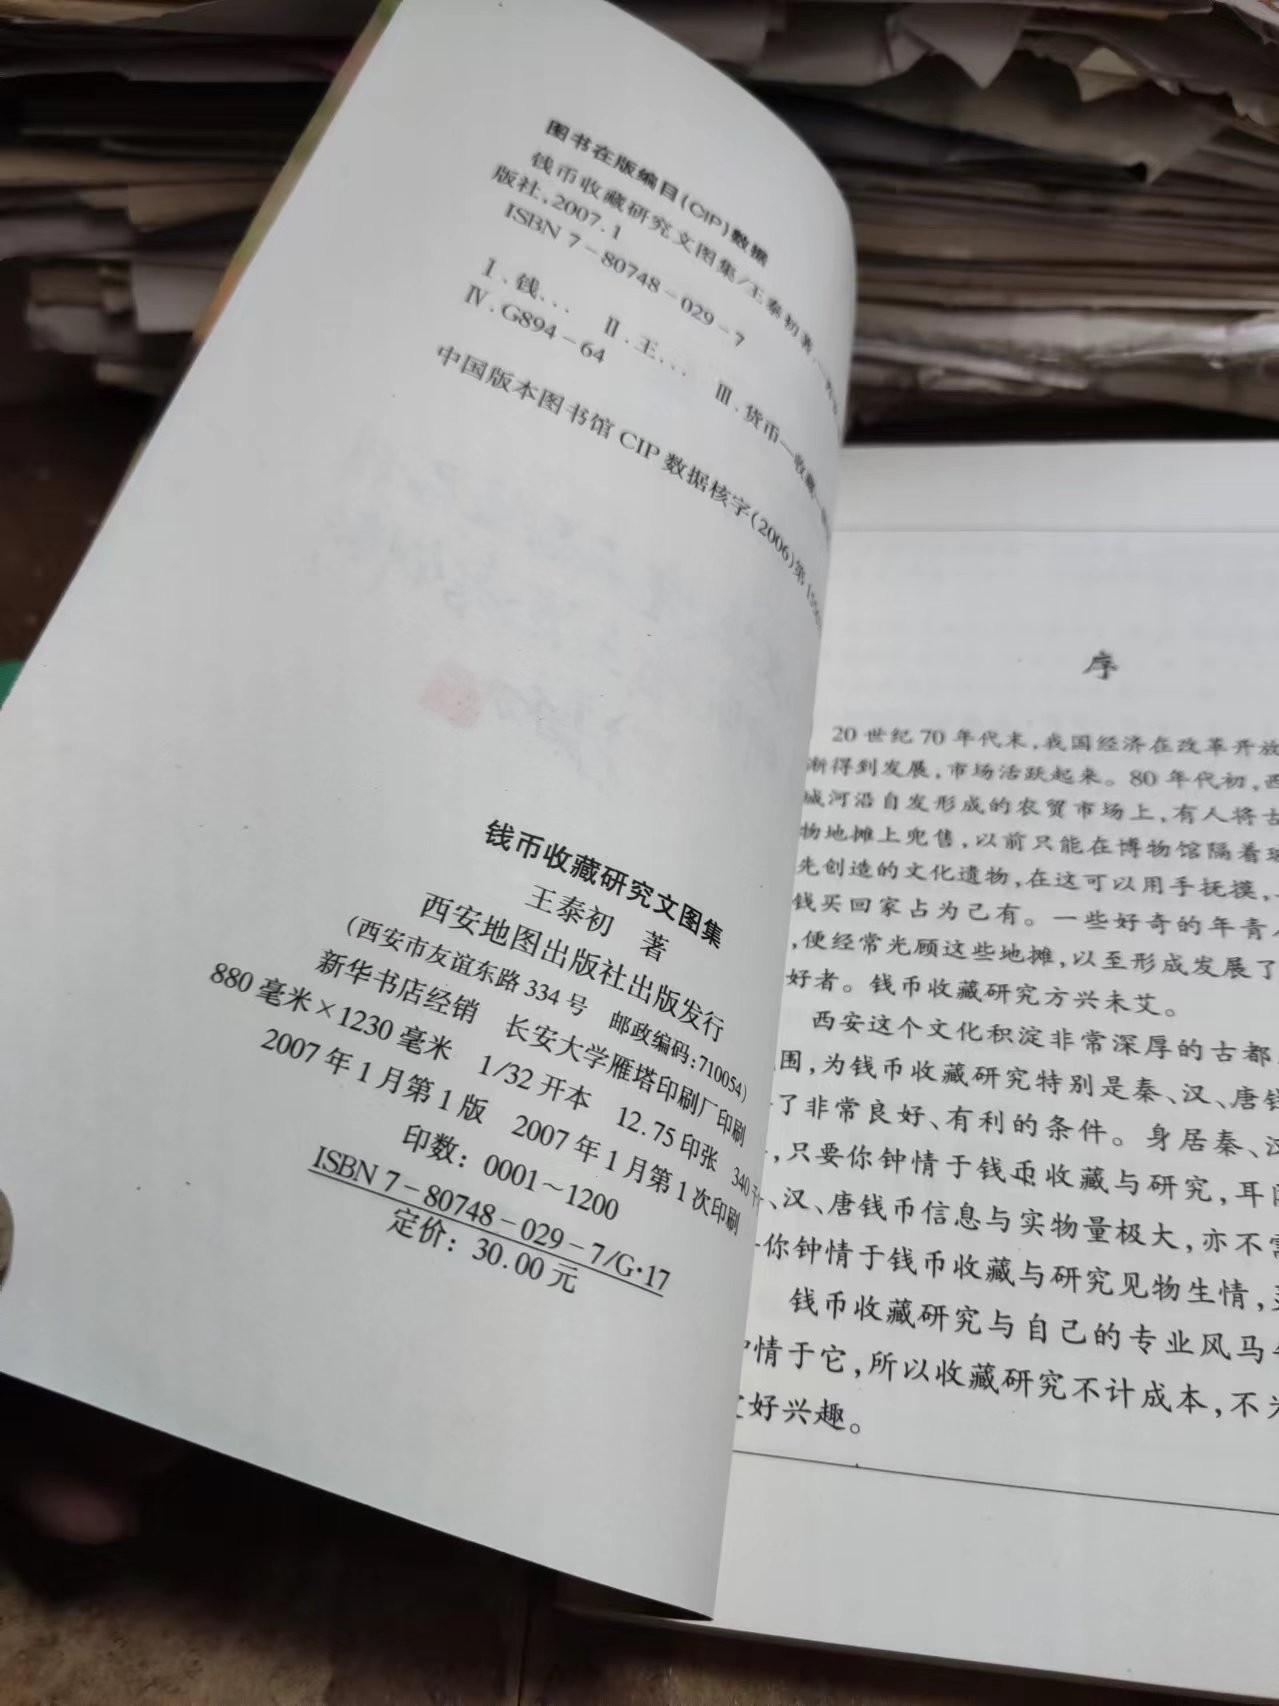 图书在版编目(CIP)数据
钱币收藏研究文图集/王泰初著.—
版社,2007.1
ISBN 7-80748-029-7
Ⅰ.钱... Ⅱ.王... Ⅲ.货币—收藏—
Ⅳ.G894-64
中国版本图书馆 CIP 数据核字(2006)第
钱币收藏研究文图集
王泰初 著
西安地图出版社出版发行
(西安市友谊东路 334 号 邮政编码:710054)
新华书店经销 长安大学雁塔印刷厂印刷
880 毫米×1230 毫米 1/32 开本 12.75 印张 340
2007 年 1 月第 1 版 2007 年 1 月第 1 次印刷
印数: 0001~1200
ISBN 7-80748-029-7/G·17
定价: 30.00 元
序
20 世纪 70 年代末,我国经济在改革开放
渐得到发展,市场活跃起来。80 年代初,西
城河沿自发形成的农贸市场上,有人将古
物地摊上兜售,以前只能在博物馆隔着玻
先创造的文化遗物,在这可以用手抚摸,
钱买回家占为己有。一些好奇的年青
,便经常光顾这些地摊,以至形成发展了
好者。钱币收藏研究方兴未艾。
西安这个文化积淀非常深厚的古都
围,为钱币收藏研究特别是秦、汉、唐钱
了非常良好、有利的条件。身居秦、汉
,只要你钟情于钱币收藏与研究,耳
、汉、唐钱币信息与实物量极大,亦不需
你钟情于钱币收藏与研究见物生情,
钱币收藏研究与自己的专业风马牛
情于它,所以收藏研究不计成本,不
好兴趣。